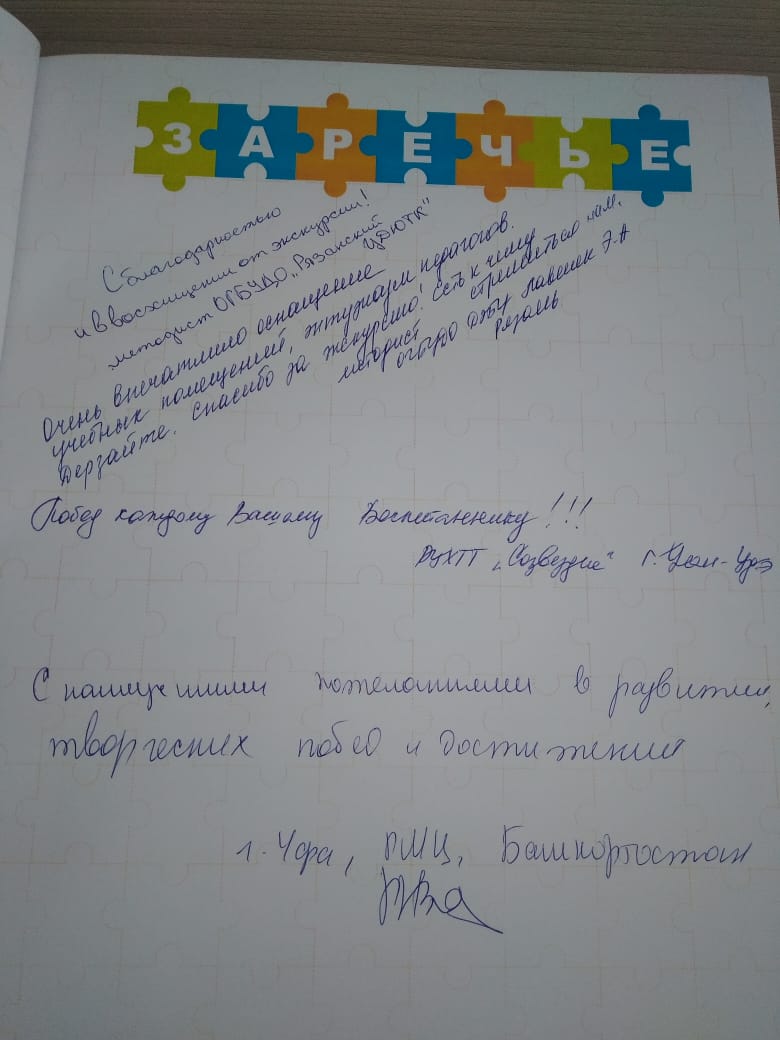 ЗАРЕЧЬЕ
С благодарностью
и в восхищении от экскурсии!
методист ОГБУДО „Рязанский
ЦДЮТК"
Очень впечатлило оснащение
учебных помещений, энтузиазм педагогов.
Дерзайте. Спасибо за экскурсию! Есть к чему
стремиться нам.
методист
Э.А
Рязань
Побед каждому Вашему Воспитаннику!!!
„Созвездие" г. Улан-Удэ
С наилучшими пожеланиями в развитии,
творческих побед и достижений
г. Уфа, РМЦ, Башкортостан